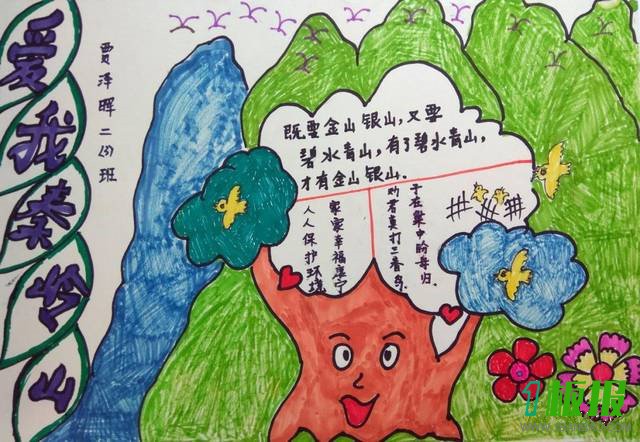 爱我秦岭山
贾泽晖二(3)班
既要金山银山,又要
碧水青山,有了碧水青山,
才有金山银山.
人人保护环境
家家幸福康宁
劝君莫打三春鸟.
子在巢中盼母归.
板报